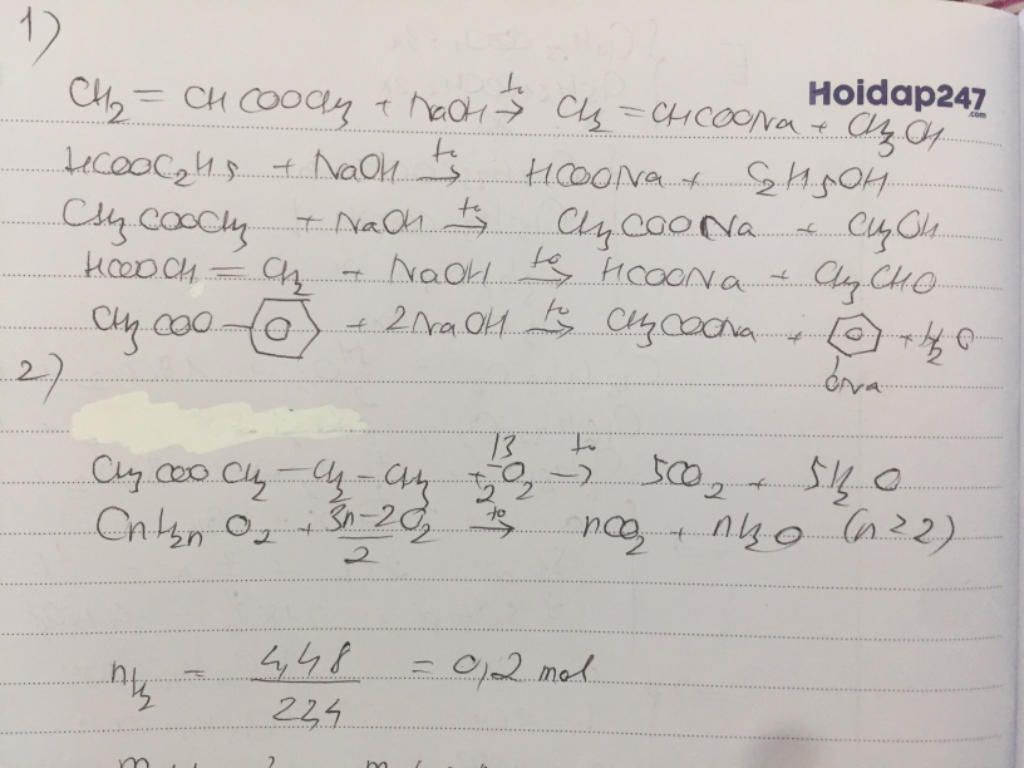 1)
Hoidap247
.com
CH2 = CHCOOCH3 + NaOH →(t°) CH2 = CHCOONa + CH3OH
HCOOC2H5 + NaOH →(t°) HCOONa + C2H5OH
CH3COOCH3 + NaOH →(t°) CH3COONa + CH3OH
HCOOCH = CH2 + NaOH →(t°) HCOONa + CH3CHO
CH3COO- + 2NaOH →(t°) CH3COONa + + H2O
ONa
2)
CH3COOCH2 - CH2 - CH3 + 13/2 O2 →(t°) 5CO2 + 5H2O
CnH2nO2 + 3n-2/2 O2 →(t°) nCO2 + nH2O (n ≥ 2)
nH2 = 4,48/22,4 = 0,2 mol